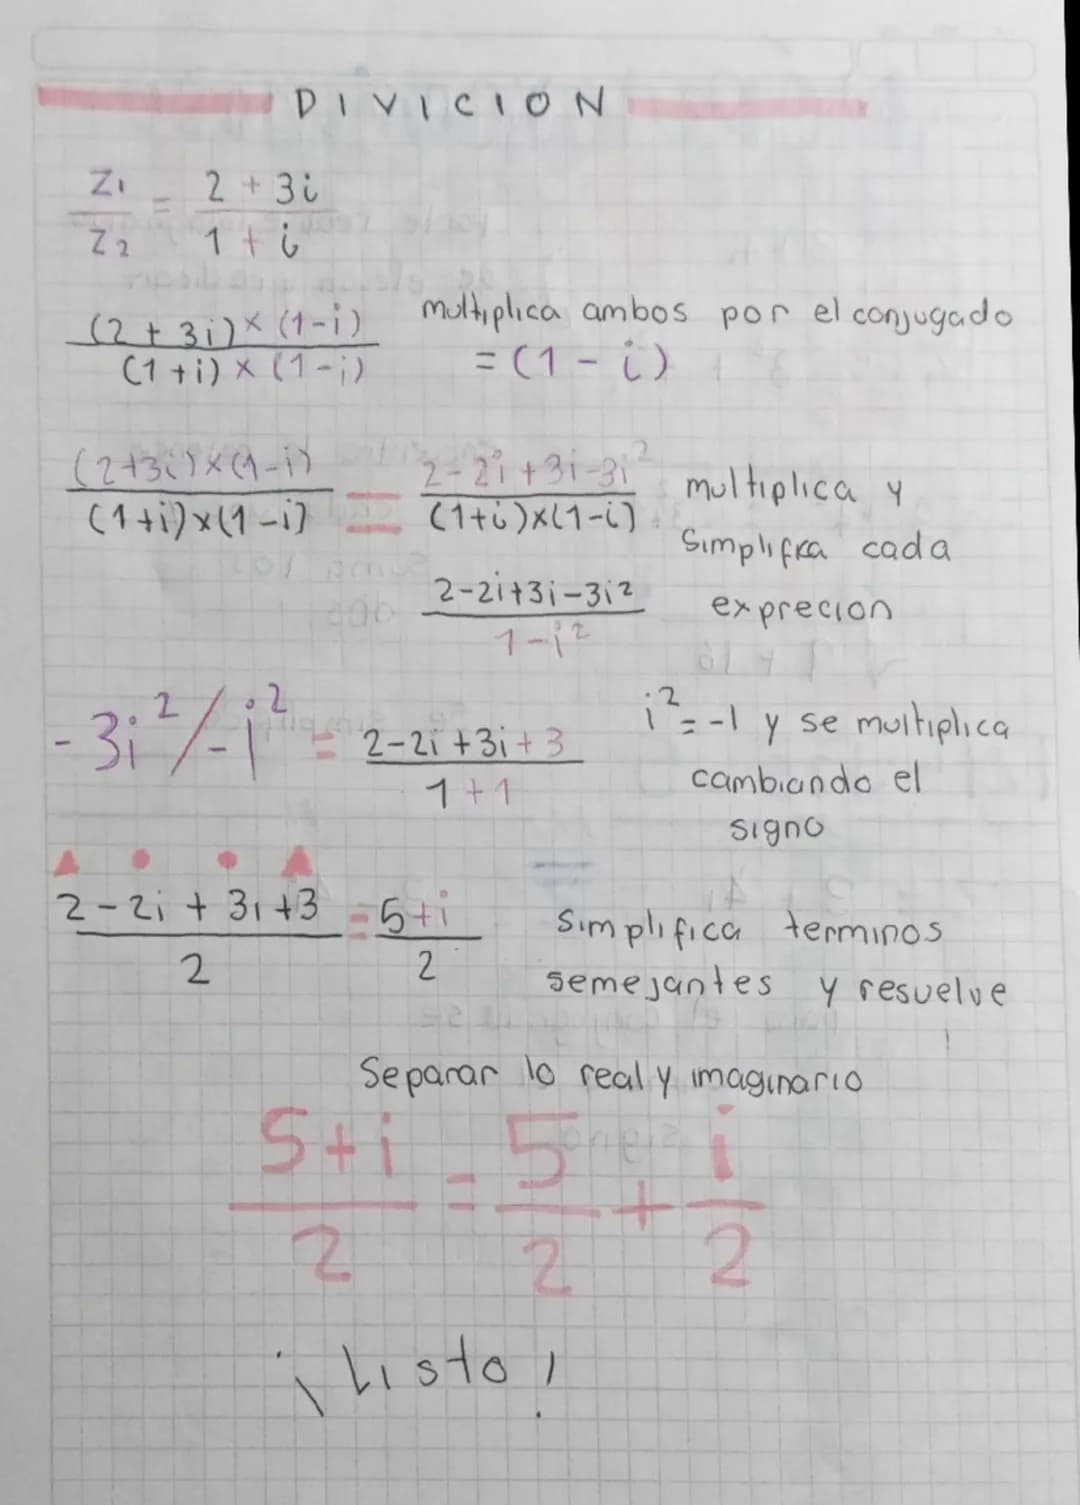 DIVICION
Z1/Z2 = 2 + 3i/1 + i
(2 + 3i) × (1-i)/(1 + i) × (1-i) multiplica ambos por el conjugado
= (1 - i)
(2+3i)×(1-i)/(1+i)×(1-i) = 2-2i+3i-3i²/(1+i)×(1-i) multiplica y
Simplifica cada
2-2i+3i-3i²/1-i² exprecion
-3i²/-i² = 2-2i+3i+3/1+1 i²=-1 y se multiplica
cambiando el
signo
2-2i+3i+3/2 = 5+i/2 Simplifica terminos
semejantes y resuelve
Separar lo real y imaginario
5+i/2 = 5/2 + i/2
¡Listo!